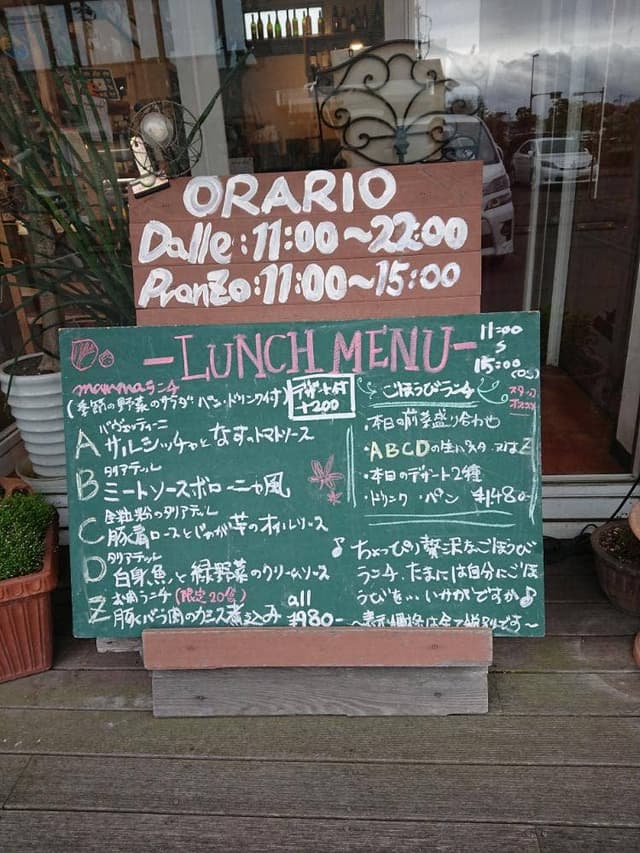 ORARIO
Dalle:11:00〜22:00
Pranzo:11:00〜15:00
-LUNCH MENU-
11:00
15:00
(OS)
mammaランチ
(季節の野菜のサラダ パン・ドリンク付)
デザート付
+200
A サルシッチャとなすのトマトソース
タリアテッレ
B ミートソースボローニャ風
全粒粉のタリアテッレ
C 豚肩ロースとじゃが芋のオイルソース
タリアテッレ
D 白身魚と緑野菜のクリームソース
お肉ランチ(限定20食)
Z 豚バラ肉のカシス煮込み
all
¥980-
ごほうびランチ
スタッフ
オススメ
・本日の前菜盛り合わせ
・ABCDの生パスタ 又はZ
・本日のデザート2種
・ドリンク ・パン ¥1480-
♪ちょっぴり贅沢なごほうび
ランチ、たまには自分にごほ
うびを… いかがですか♪
〜表示価格は全て税別です〜